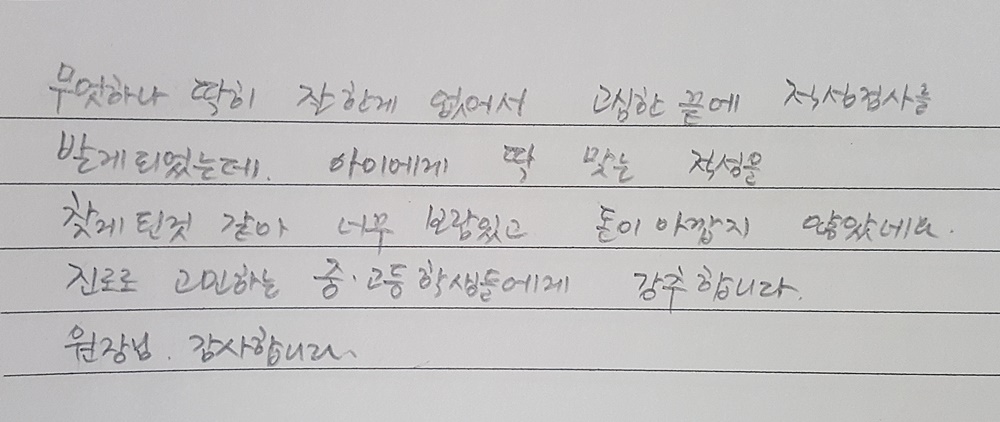 무엇하나 딱히 잘한게 없어서 고심한 끝에 적성검사를
받게되었는데. 아이에게 딱 맞는 적성을
찾게된것 같아 너무 보람있고 돈이 아깝지 않았네요.
진로로 고민하는 중·고등학생들에게 강추합니다.
원장님. 감사합니다.